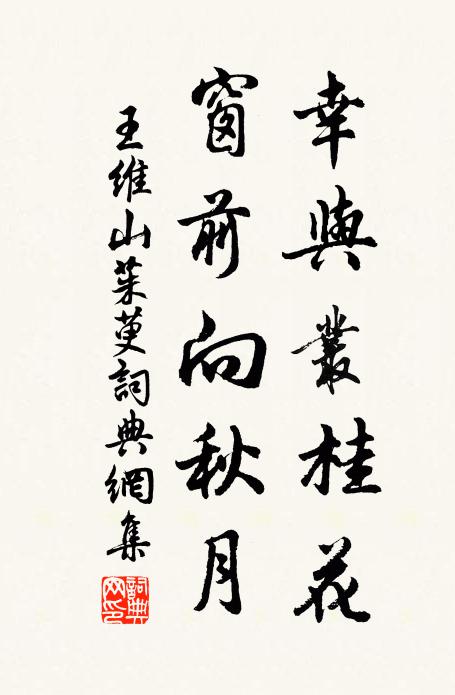 幸與叢桂花
窗前向秋月
王維山茱萸詞典網集
詞典網印